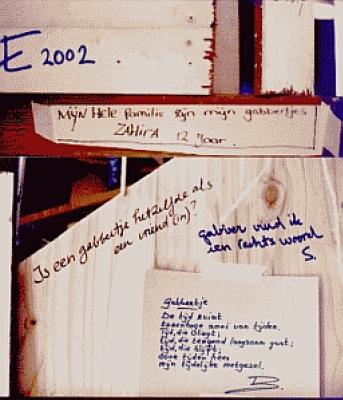 E 2002
Mijn Hele familie zijn mijn gabbertjes
ZAHIRA 12 Jaar.
Is een gabbertje hetzelfde als
een vriend(in)?
gabber vind ik
een rechts woord
S.
Gabbertje
De tijd
van tijden.
tijd, die vliegt;
tijd, die tergend langzaam gaat;
tijd, die blijft;
door tijden heen
mijn tijdelijke metgezel.